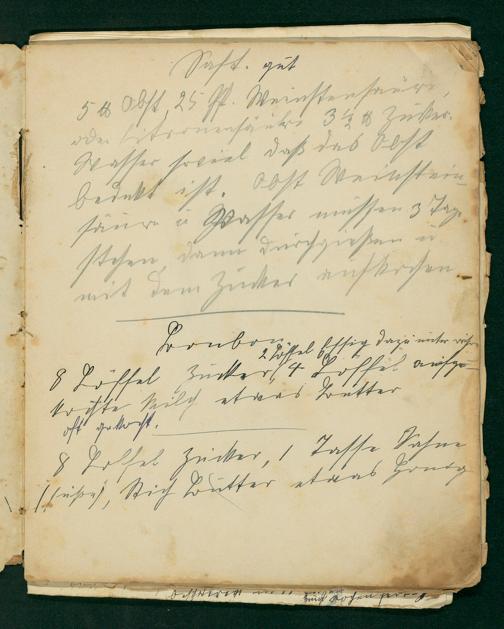 Saft. gut
5 ℔ Obst, 25 gr. Weinsteinsäure,
oder Citronensäure 3 ½ ℔ Zucker.
Wasser soviel daß das Obst
bedekt ist. Obst Weinstein-
säure u Wasser müssen 3 Tage
stehen, dann durchgießen u
mit dem Zucker aufkochen
Bonbon
2 Löffel Essig dazu unter
8 Löffel Zucker, 4 Löffel aufge-
kochte Milch etwas Butter
oft gekocht.
8 Löffel Zucker, 1 Tasse Sahne
Stich Butter etwas Honig